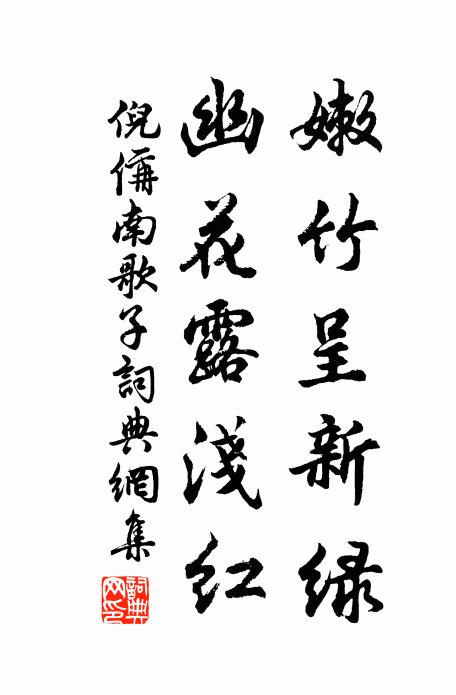 嫩竹呈新绿
幽花露淺红
倪偁南歌子詞典網集
詞典网印